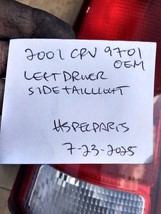 2001 CRV 9701
OEM
LEFT DRIVER
SIDE TAILLIGHT
HSPECPARTS
7-23-2025